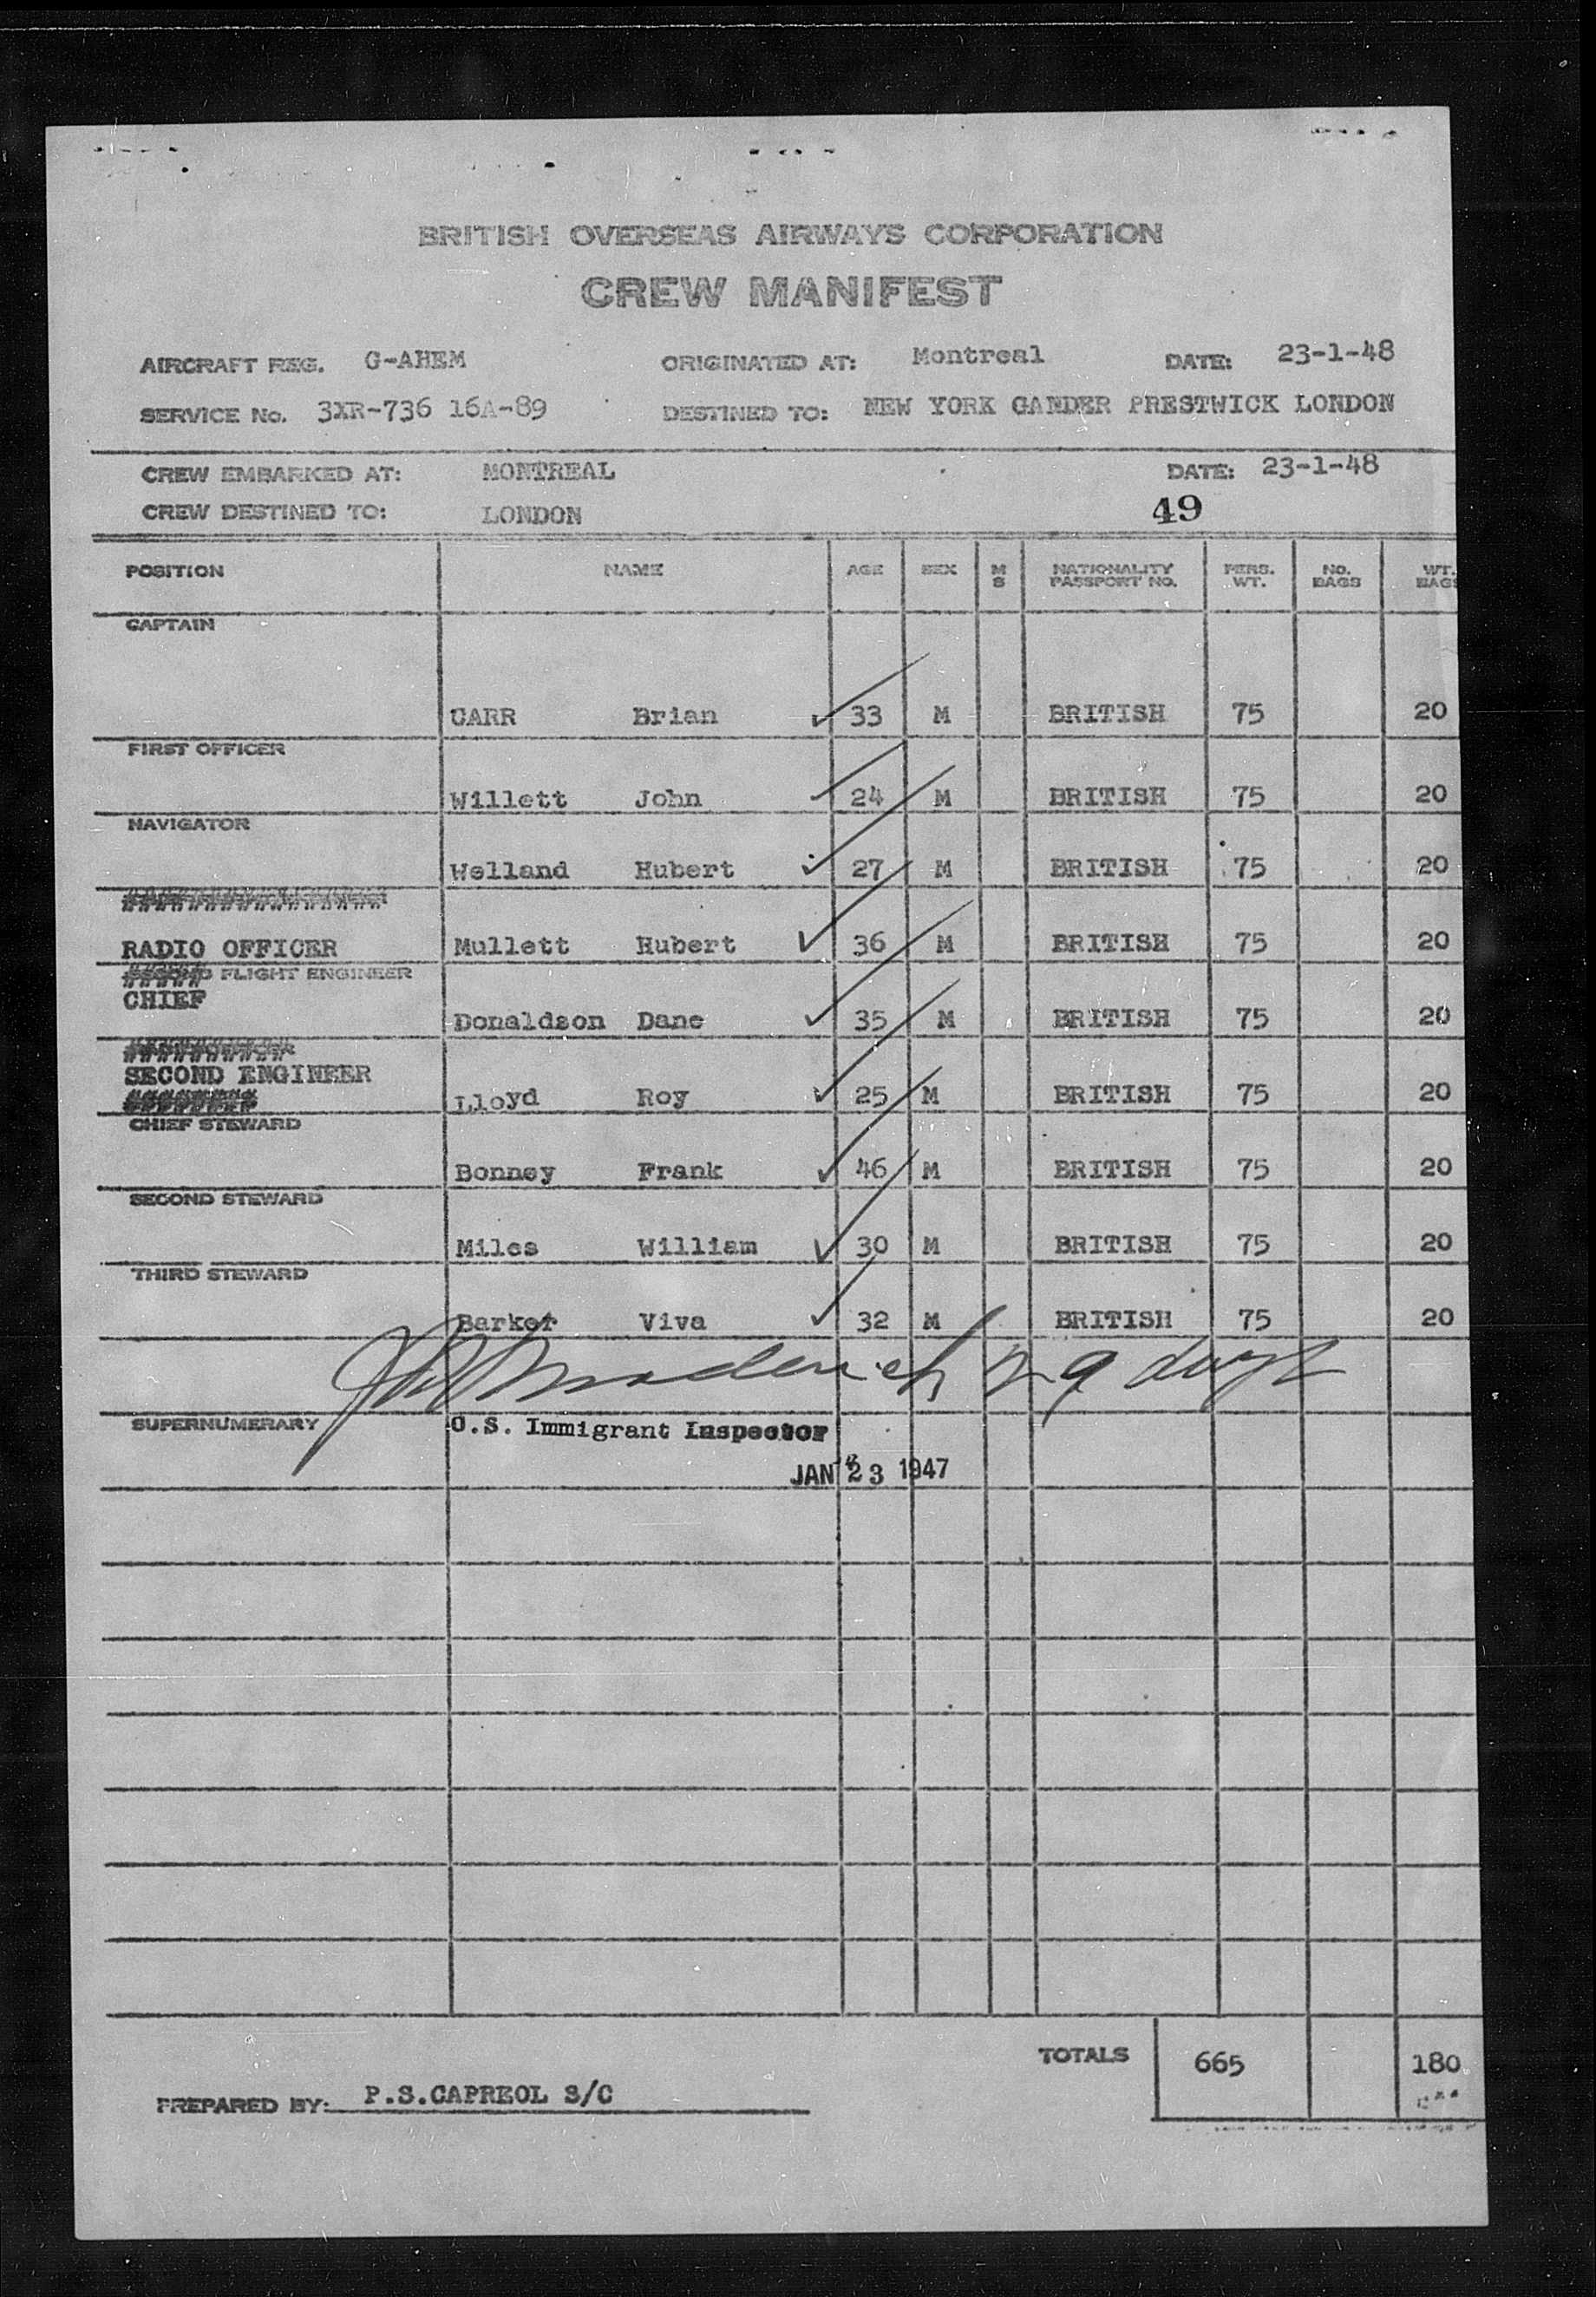 BRITISH OVERSEAS AIRWAYS CORPORATION
CREW MANIFEST
AIRCRAFT REG. G-AHEM ORIGINATED AT: Montreal DATE: 23-1-48
SERVICE No. 3XR-736 16A-89 DESTINED TO: NEW YORK GANDER PRESTWICK LONDON
CREW EMBARKED AT: MONTREAL DATE: 23-1-48
CREW DESTINED TO: LONDON 49
POSITION NAME AGE SEX M S NATIONALITY PASSPORT NO. PERS. WT. NO. BAGS WT. BAGS
CAPTAIN
CARR Brian 33 M BRITISH 75 20
FIRST OFFICER
Willett John 24 M BRITISH 75 20
NAVIGATOR
Welland Hubert 27 M BRITISH 75 20
RADIO OFFICER Mullett Hubert 36 M BRITISH 75 20
FLIGHT ENGINEER
CHIEF
Donaldson Dane 35 M BRITISH 75 20
SECOND ENGINEER
Lloyd Roy 25 M BRITISH 75 20
CHIEF STEWARD
Bonney Frank 46 M BRITISH 75 20
SECOND STEWARD
Miles William 30 M BRITISH 75 20
THIRD STEWARD
Barker Viva 32 M BRITISH 75 20
SUPERNUMERARY U.S. Immigrant Inspector
JAN 23 1947
TOTALS 665 180
PREPARED BY: P.S.CAPREOL S/C